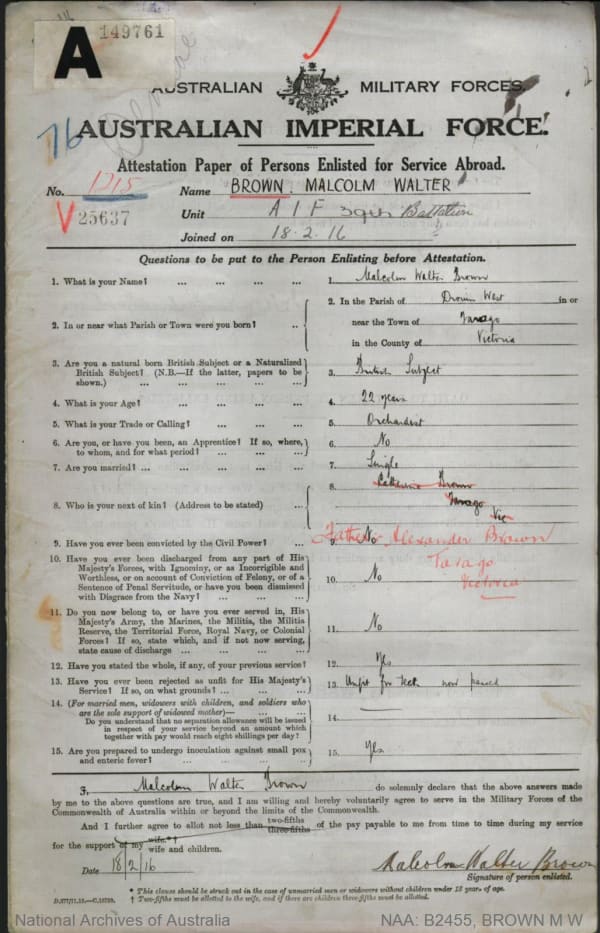 A 149761
AUSTRALIAN MILITARY FORCES.
76
AUSTRALIAN IMPERIAL FORCE.
Attestation Paper of Persons Enlisted for Service Abroad.
No. 1715 Name BROWN, MALCOLM WALTER
V25637 Unit A I F 39th Battalion
Joined on 18.2.16
Questions to be put to the Person Enlisting before Attestation.
1. What is your Name? ... ... ... ... 1. Malcolm Walter Brown
2. In or near what Parish or Town were you born? .. 2. In the Parish of Drouin West in or
near the Town of Tarago
in the County of Victoria
3. Are you a natural born British Subject or a Naturalized
British Subject? (N.B.—If the latter, papers to be
shown.) ... ... ... ... ... 3. British Subject
4. What is your Age? ... ... ... ... 4. 22 years
5. What is your Trade or Calling? ... ... ... 5. Orchardist
6. Are you, or have you been, an Apprentice? If so, where,
to whom, and for what period? ... ... ... 6. No
7. Are you married? ... ... ... ... ... 7. Single
8. Who is your next of kin? (Address to be stated) ... 8. Catherine Brown
Tarago
Vic
9. Have you ever been convicted by the Civil Power? ... 9. No
Father Alexander Brown
Tarago
Victoria
10. Have you ever been discharged from any part of His
Majesty's Forces, with Ignominy, or as Incorrigible and
Worthless, or on account of Conviction of Felony, or of a
Sentence of Penal Servitude, or have you been dismissed
with Disgrace from the Navy? ... ... ... 10. No
11. Do you now belong to, or have you ever served in, His
Majesty's Army, the Marines, the Militia, the Militia
Reserve, the Territorial Force, Royal Navy, or Colonial
Forces? If so, state which, and if not now serving,
state cause of discharge ... ... ... ... 11. No
12. Have you stated the whole, if any, of your previous service? 12. Yes
13. Have you ever been rejected as unfit for His Majesty's
Service? If so, on what grounds? ... ... ... 13. Unfit for teeth now passed
14. (For married men, widowers with children, and soldiers who
are the sole support of widowed mother)—
Do you understand that no separation allowance will be issued
in respect of your service beyond an amount which
together with pay would reach eight shillings per day? ... 14.
15. Are you prepared to undergo inoculation against small pox
and enteric fever? ... ... ... ... 15. Yes
I, Malcolm Walter Brown do solemnly declare that the above answers made
by me to the above questions are true, and I am willing and hereby voluntarily agree to serve in the Military Forces of the
Commonwealth of Australia within or beyond the limits of the Commonwealth.
And I further agree to allot not less than two-fifths three-fifths of the pay payable to me from time to time during my service
for the support of my wife.* † wife and children.
Date 18/2/16 Malcolm Walter Brown
Signature of person enlisted.
* This clause should be struck out in the case of unmarried men or widowers without children under 18 years of age.
† Two-fifths must be allotted to the wife, and if there are children three-fifths must be allotted.
National Archives of Australia NAA: B2455, BROWN M W